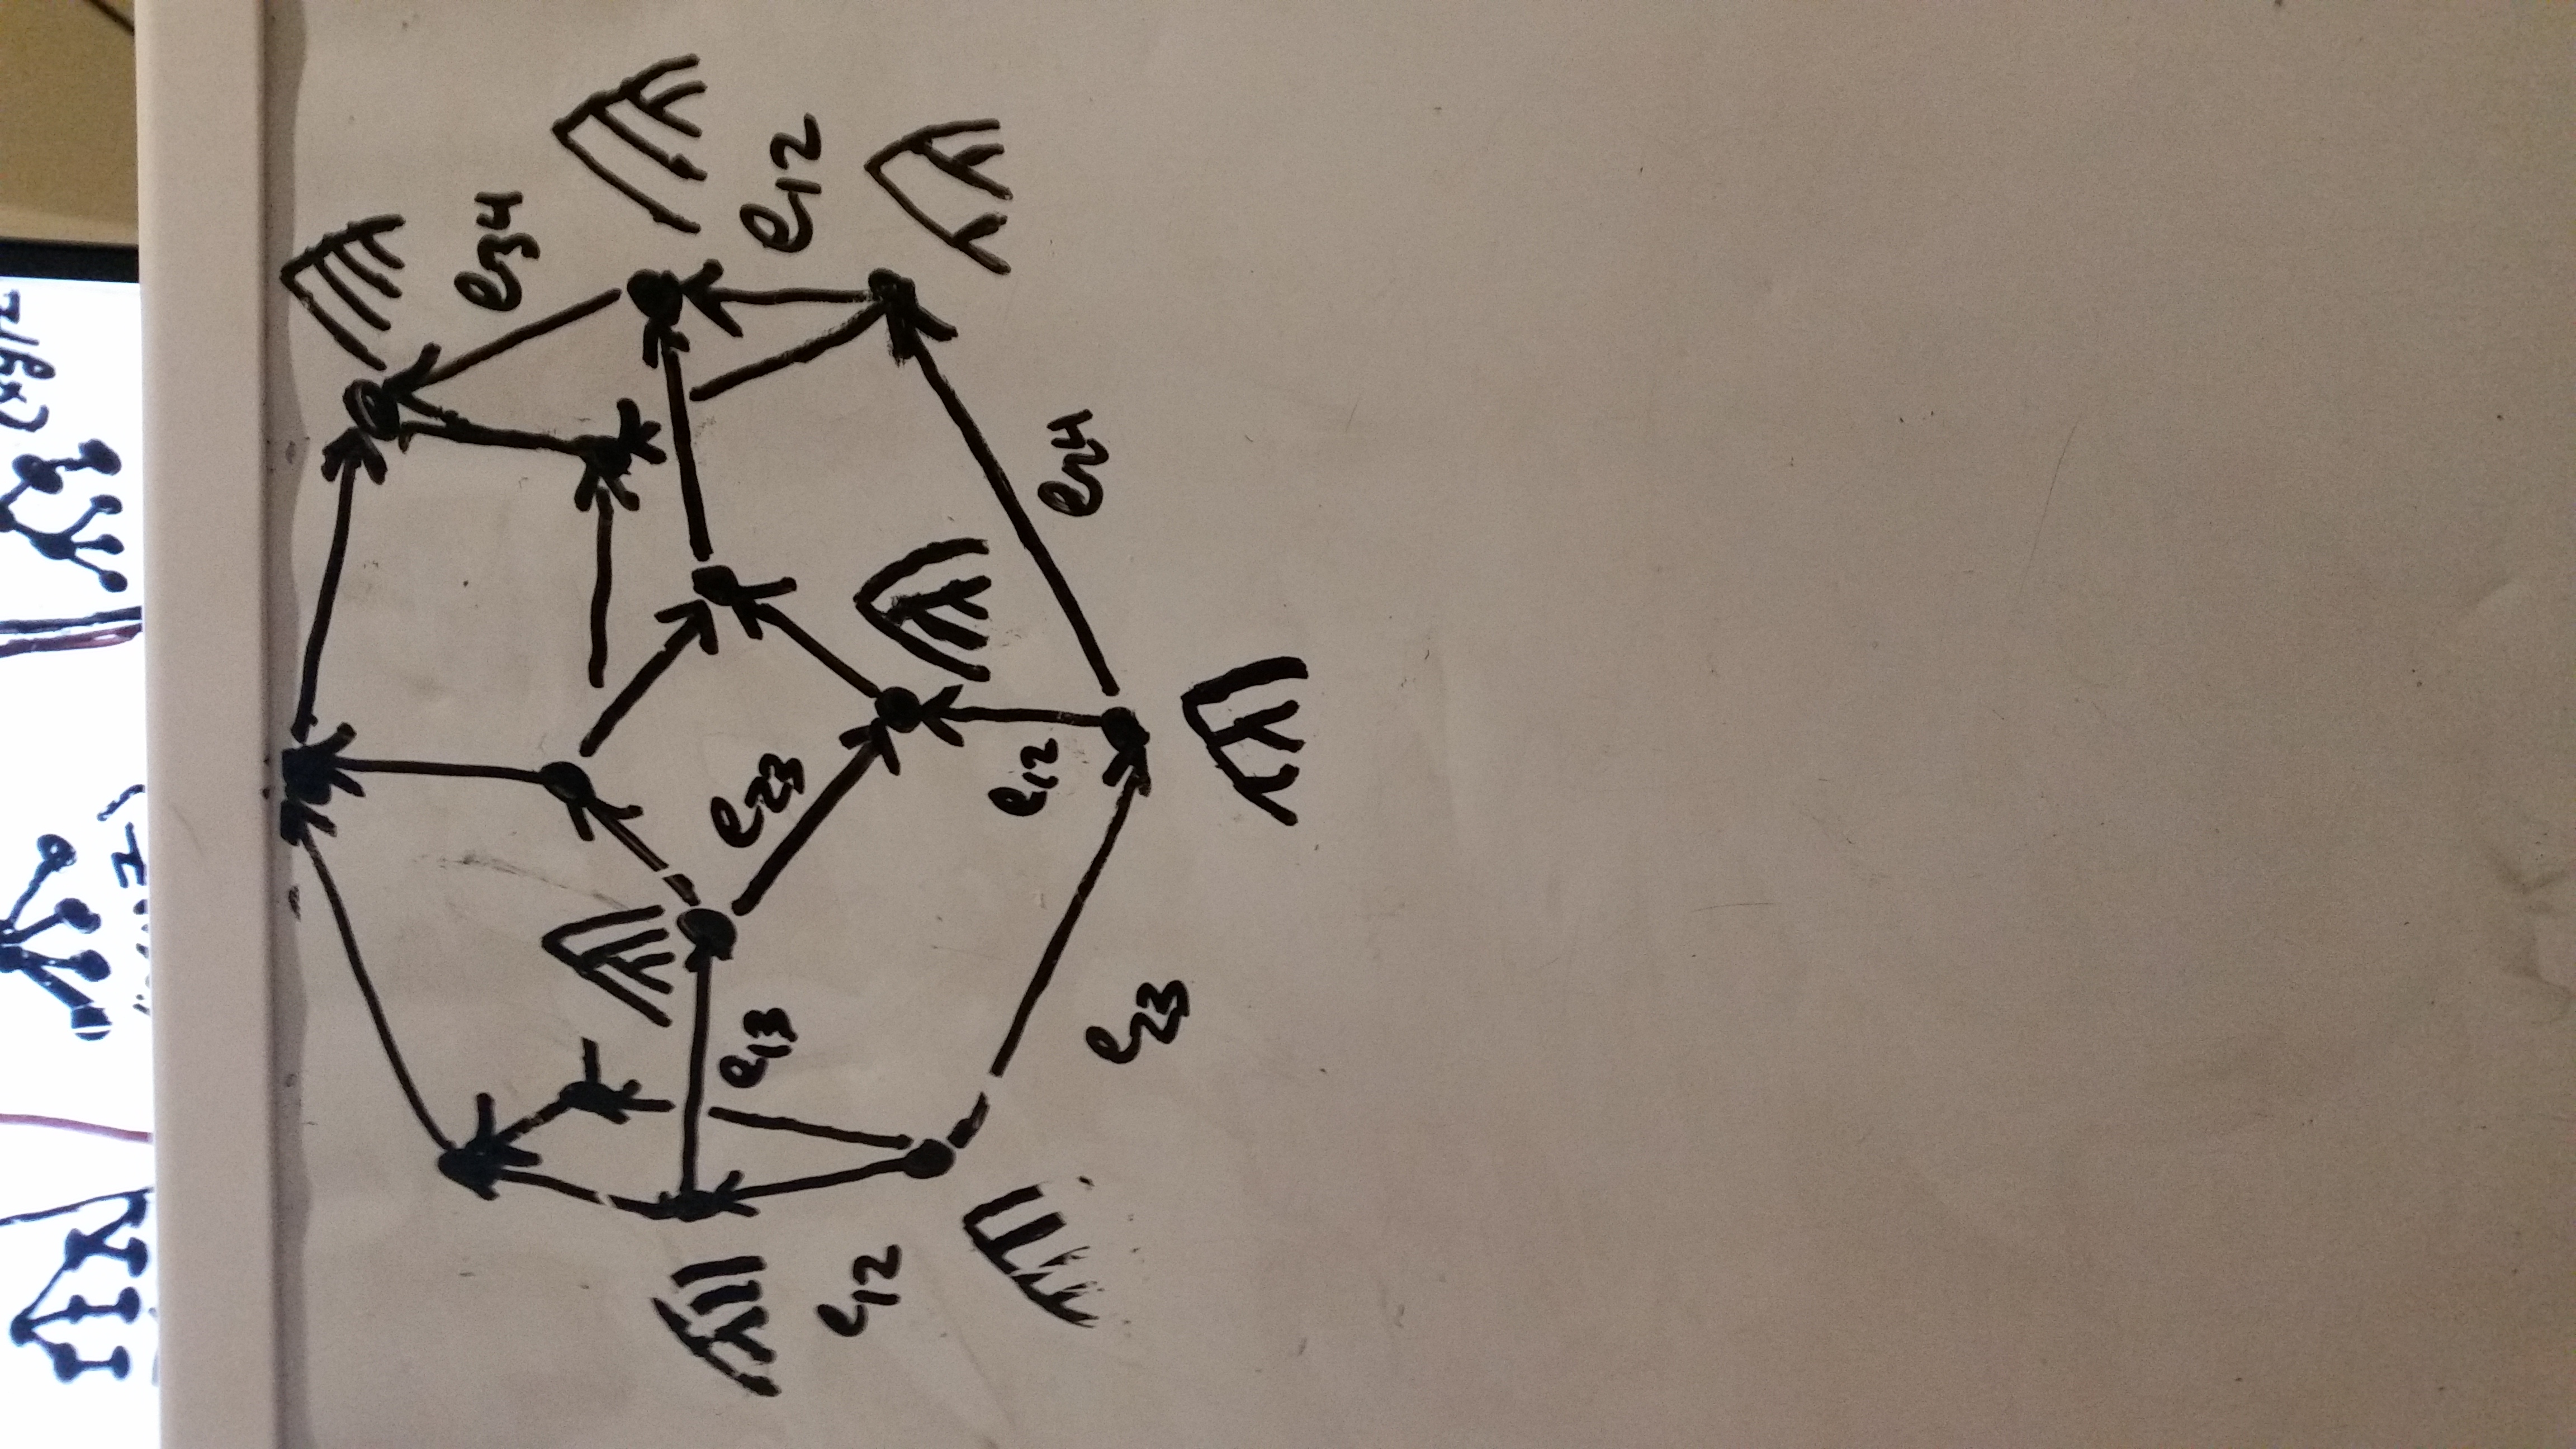 (xy)z
e34
e13
e23
e12
e12
e12
e24
e23